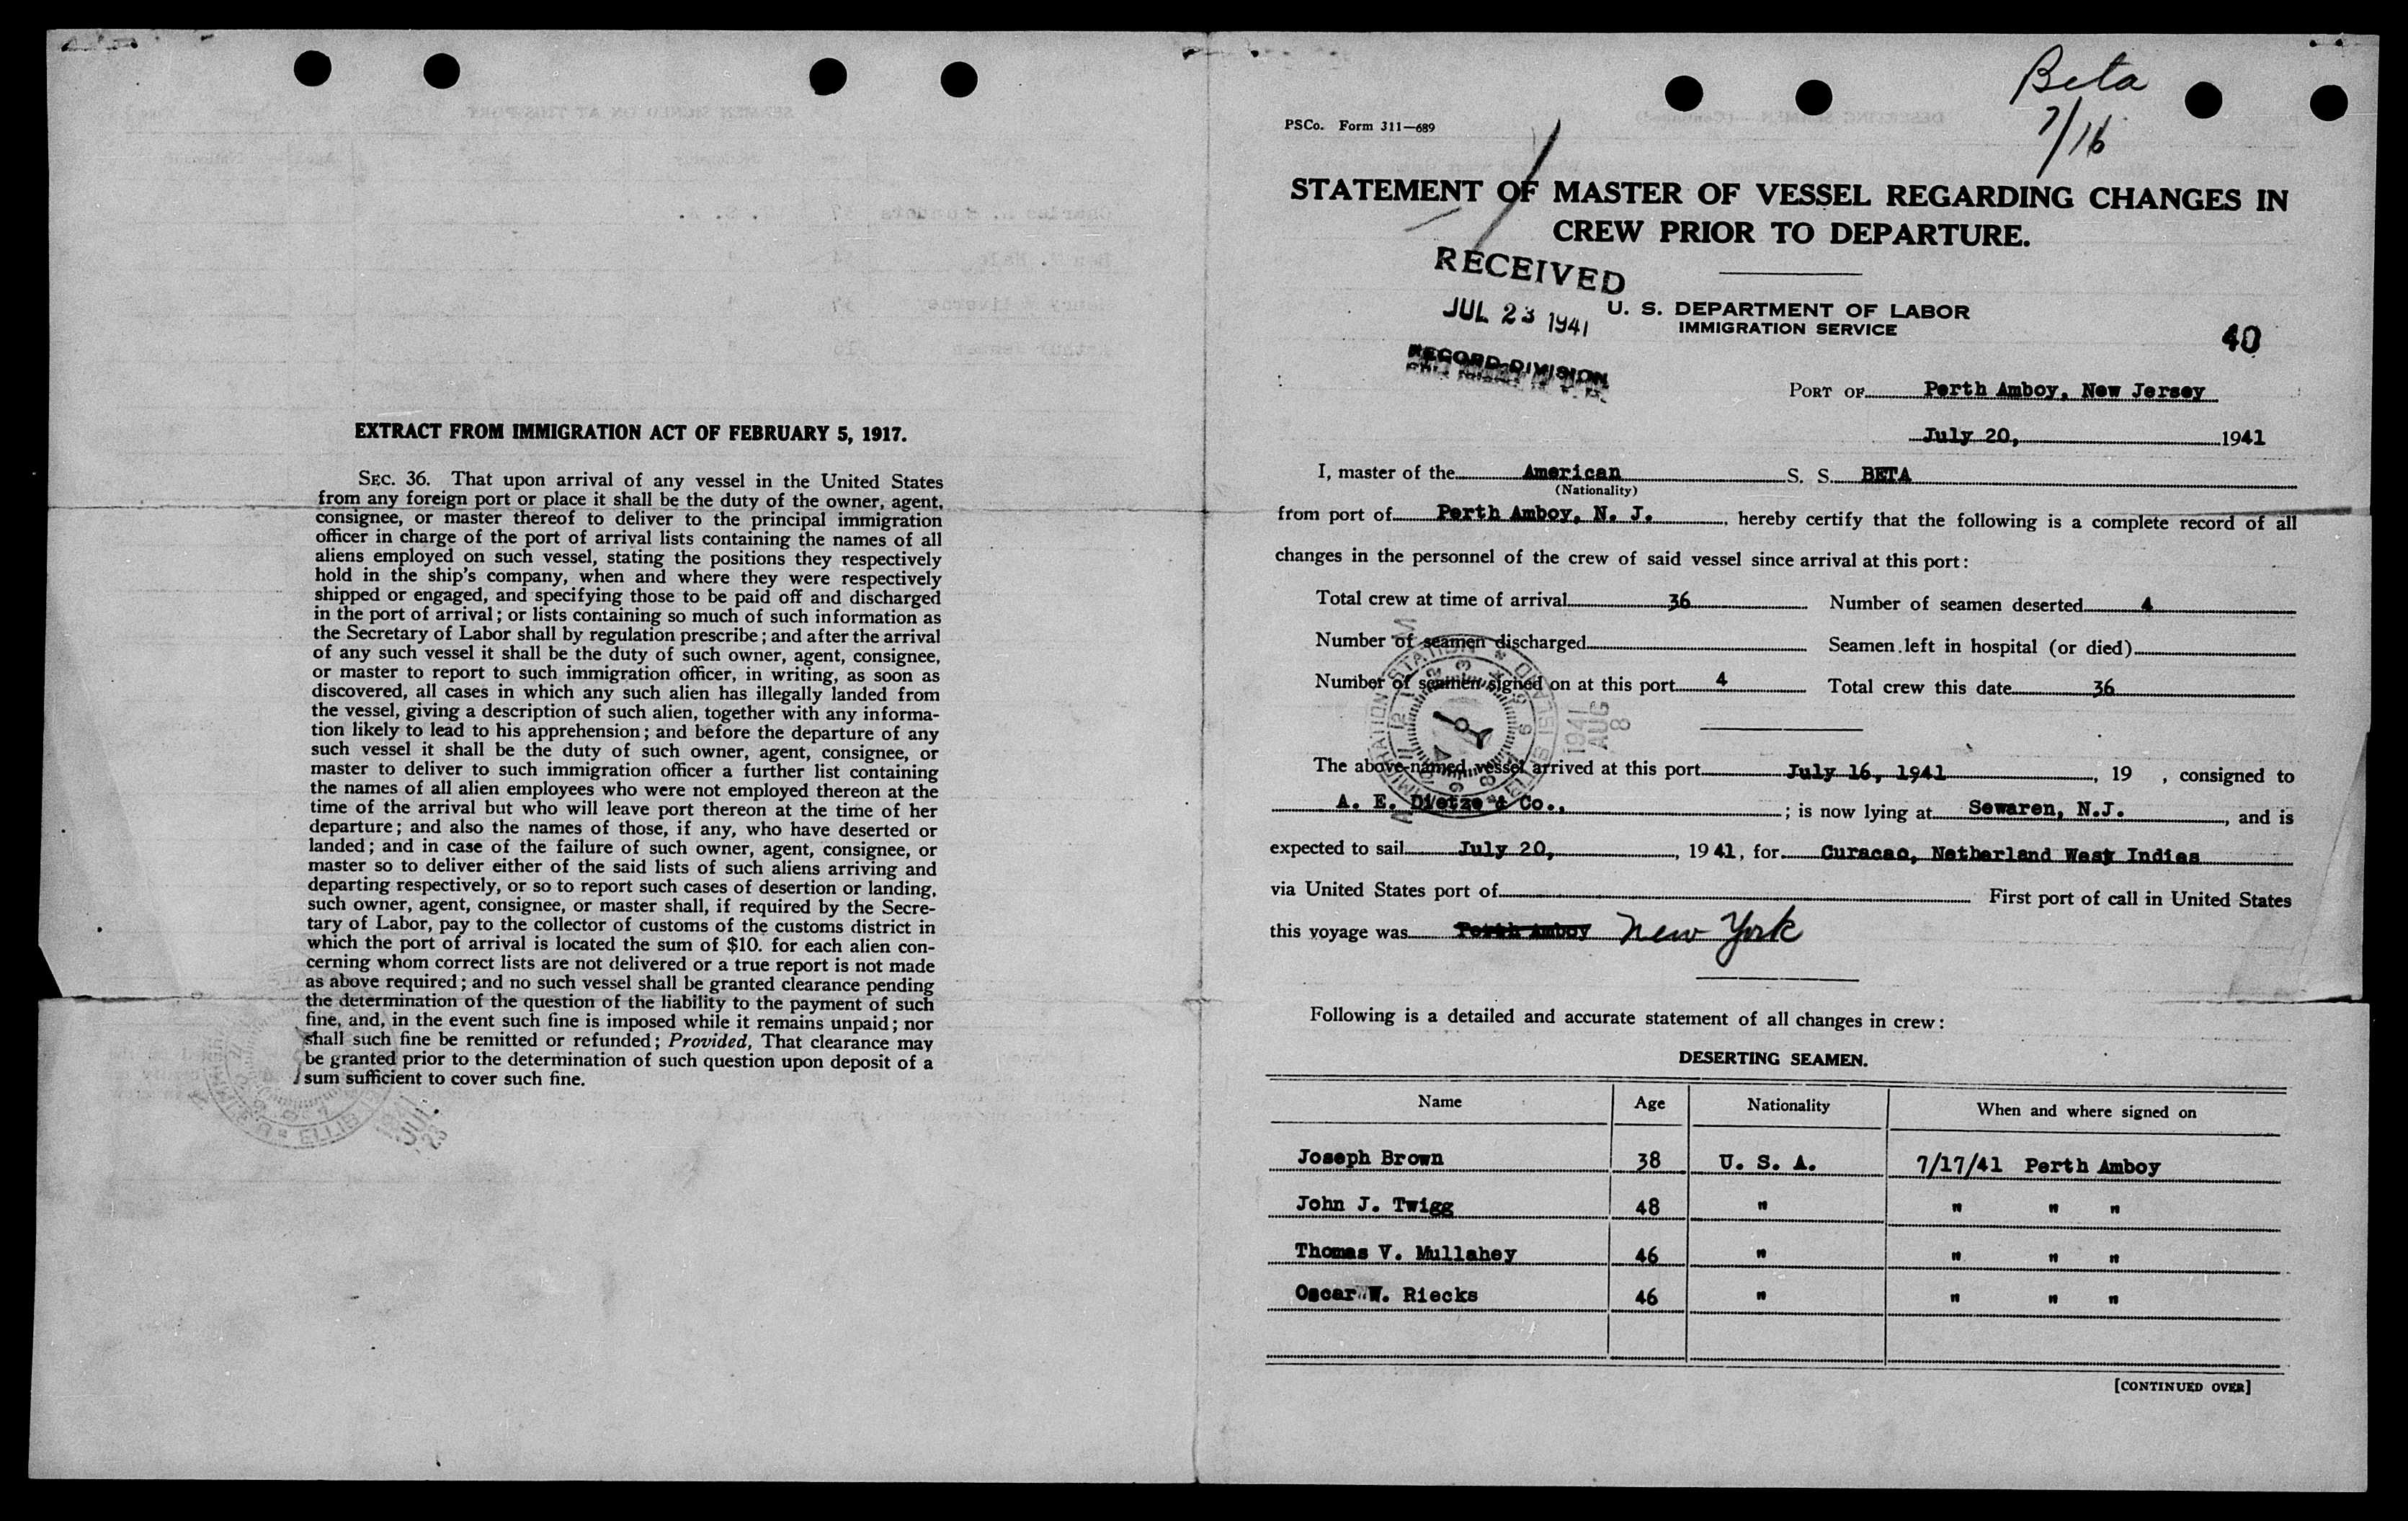 EXTRACT FROM IMMIGRATION ACT OF FEBRUARY 5, 1917.
SEC. 36. That upon arrival of any vessel in the United States
from any foreign port or place it shall be the duty of the owner, agent,
consignee, or master thereof to deliver to the principal immigration
officer in charge of the port of arrival lists containing the names of all
aliens employed on such vessel, stating the positions they respectively
hold in the ship's company, when and where they were respectively
shipped or engaged, and specifying those to be paid off and discharged
in the port of arrival; or lists containing so much of such information as
the Secretary of Labor shall by regulation prescribe; and after the arrival
of any such vessel it shall be the duty of such owner, agent, consignee,
or master to report to such immigration officer, in writing, as soon as
discovered, all cases in which any such alien has illegally landed from
the vessel, giving a description of such alien, together with any informa-
tion likely to lead to his apprehension; and before the departure of any
such vessel it shall be the duty of such owner, agent, consignee, or
master to deliver to such immigration officer a further list containing
the names of all alien employees who were not employed thereon at the
time of the arrival but who will leave port thereon at the time of her
departure; and also the names of those, if any, who have deserted or
landed; and in case of the failure of such owner, agent, consignee, or
master so to deliver either of the said lists of such aliens arriving and
departing respectively, or so to report such cases of desertion or landing,
such owner, agent, consignee, or master shall, if required by the Secre-
tary of Labor, pay to the collector of customs of the customs district in
which the port of arrival is located the sum of $10. for each alien con-
cerning whom correct lists are not delivered or a true report is not made
as above required; and no such vessel shall be granted clearance pending
the determination of the question of the liability to the payment of such
fine, and, in the event such fine is imposed while it remains unpaid; nor
shall such fine be remitted or refunded; Provided, That clearance may
be granted prior to the determination of such question upon deposit of a
sum sufficient to cover such fine.
Beta
7/16
PSCo. Form 311—689
STATEMENT OF MASTER OF VESSEL REGARDING CHANGES IN
CREW PRIOR TO DEPARTURE.
RECEIVED
JUL 23 1941
RECORD DIVISION
U. S. DEPARTMENT OF LABOR
IMMIGRATION SERVICE
40
PORT OF Perth Amboy, New Jersey
July 20, 1941
I, master of the American S. S. BETA
(Nationality)
from port of Perth Amboy, N. J. , hereby certify that the following is a complete record of all
changes in the personnel of the crew of said vessel since arrival at this port:
Total crew at time of arrival 36 Number of seamen deserted 4
Number of seamen discharged Seamen left in hospital (or died)
Number of seamen signed on at this port 4 Total crew this date 36
1941 AUG 8
The above-named vessel arrived at this port July 16, 1941 , 19 , consigned to
A. E. Dietze & Co., ; is now lying at Sewaren, N.J. , and is
expected to sail July 20, , 1941, for Curacao, Netherland West Indies
via United States port of First port of call in United States
this voyage was Perth Amboy New York
Following is a detailed and accurate statement of all changes in crew:
DESERTING SEAMEN.
Name Age Nationality When and where signed on
Joseph Brown 38 U. S. A. 7/17/41 Perth Amboy
John J. Twigg 48 " " " "
Thomas V. Mullahey 46 " " " "
Oscar W. Riecks 46 " " " "
[CONTINUED OVER]